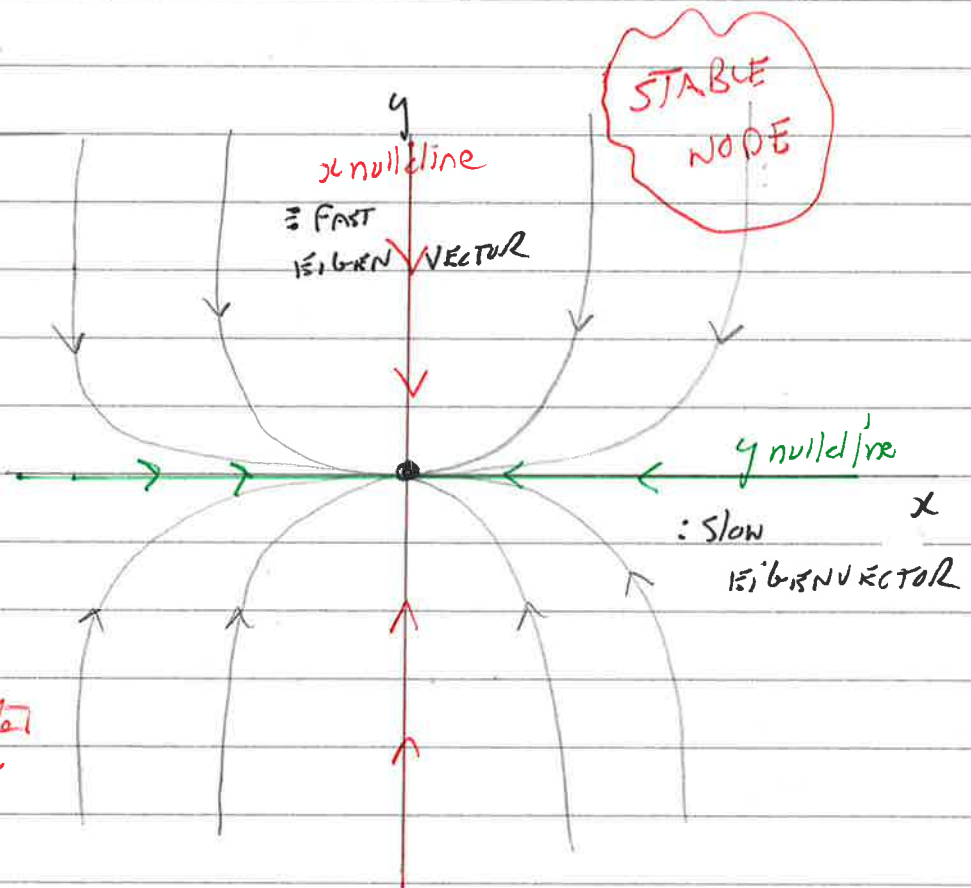 STABLE
NODE
y
x nullcline
≡ FAST
EIGEN VECTOR
y nullcline
x
: Slow
EIGENVECTOR